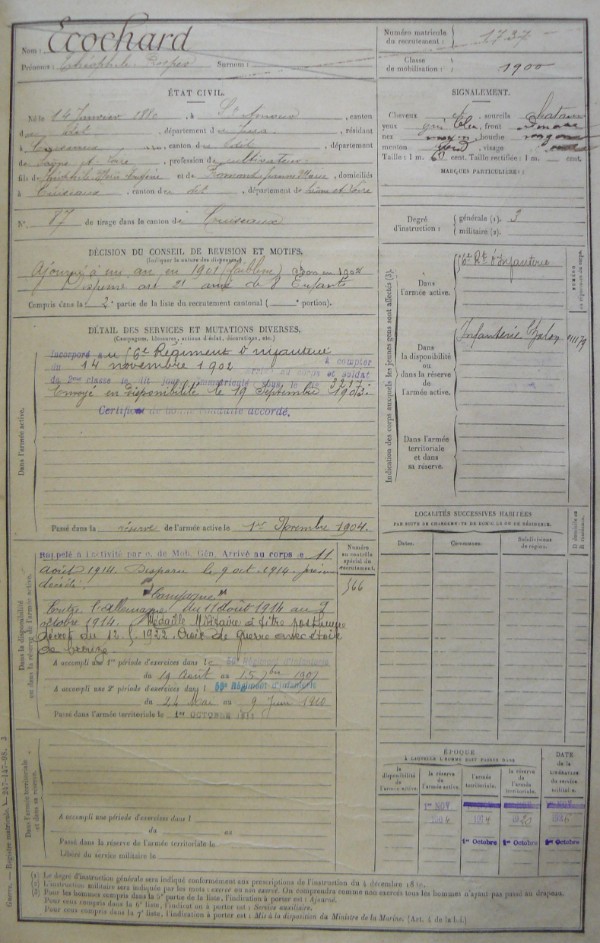 Nom : Ecochard
Prénoms : Théophile Prosper Surnom :
Numéro matricule du recrutement : 1737
Classe de mobilisation : 1900
ÉTAT CIVIL.
Né le 14 Janvier 1880, à St Amour, canton
d dit, département d Jura, résidant
à Cuiseaux, canton d dit, département
d Saône et Loire, profession d cultivateur
fils d et d , domiciliés
à Cuiseaux, canton d dit, département d Saône et Loire
N° 87 de tirage dans le canton d Cuiseaux
SIGNALEMENT.
Cheveux sourcils chatain
yeux gris bleu, front
nez bouche
menton rond, visage
Taille : 1 m. cent. Taille rectifiée : 1 m. cent.
MARQUES PARTICULIÈRES :
Degré d'instruction : générale (1). 3
militaire (2).
DÉCISION DU CONSEIL DE REVISION ET MOTIFS.
(Indiquer la nature des dispenses)
Ajourné à un an en 1901 (faiblesse) bon en 1902
Dispensé art 21 ainé de 8 Enfants
Compris dans la 2e partie de la liste du recrutement cantonal ( portion).
DÉTAIL DES SERVICES ET MUTATIONS DIVERSES.
(Campagnes, blessures, actions d'éclat, décorations, etc.)
Dans l'armée active.
Incorporé au 56e Régiment d'infanterie
à compter
du 14 novembre 1902 arrivé au corps et soldat
de 2me classe le dit jour, immatriculé sous le n° 3217
Envoyé en disponibilité le 19 Septembre 1903.
Certificat de bonne conduite accordé.
Passé dans la réserve de l'armée active le 1er Novembre 1904.
Indication des corps auxquels les jeunes gens sont affectés (3).
Dans l'armée active.
56e Rt d'Infanterie
Dans la disponibilité ou dans la réserve de l'armée active.
Infanterie Chalon
Dans l'armée territoriale et dans sa réserve.
LOCALITÉS SUCCESSIVES HABITÉES
PAR SUITE DE CHANGEMENTS DE DOMICILE OU DE RÉSIDENCE.
Dates. Communes. Subdivisions de région. D domicile ou R résidence.
Dans la disponibilité ou dans la réserve de l'armée active.
Numéro au contrôle spécial du recrutement.
566
Rappelé à l'activité par o. de Mob. Gén. Arrivé au corps le 11
août 1914. Disparu le 9 oct. 1914. présumé
décédé.
"Campagne"
Contre l'Allemagne du 11 août 1914 au 9
octobre 1914. Médaille Militaire à titre posthume
1922. Croix de guerre avec étoile
de bronze
A accompli une 1re période d'exercices dans le 56e Régiment d'Infanterie
du 19 Août au 15 7bre 1907
A accompli une 2e période d'exercices dans le 56e Régiment d'Infanterie
du 24 Mai au 9 Juin 1910
Passé dans l'armée territoriale le 1er OCTOBRE
Dans l'armée territoriale et dans sa réserve.
A accompli une période d'exercices dans l
du au
Passé dans la réserve de l'armée territoriale le
Libéré du service militaire le
ÉPOQUE
À LAQUELLE L'HOMME DOIT PASSER DANS
la disponibilité de l'armée active. la réserve de l'armée active. l'armée territoriale. la réserve de l'armée territoriale.
DATE DE LA LIBÉRATION DU SERVICE MILITAIRE.
1er Octobre 1er Octobre 1er Octobre
(1) Le degré d'instruction générale sera indiqué conformément aux prescriptions de l'instruction du 4 décembre 1889.
(2) L'instruction militaire sera indiquée par les mots : exercé ou non exercé. On comprendra comme non exercés tous les hommes n'ayant pas passé au drapeau.
(3) Pour les hommes compris dans la 5e partie de la liste, l'indication à porter est : Ajourné.
Pour ceux compris dans la 6e liste, l'indication à porter est : Service auxiliaire.
Pour ceux compris dans la 7e liste, l'indication à porter est : Mis à la disposition du Ministre de la Marine. (Art. 4 de la loi.)